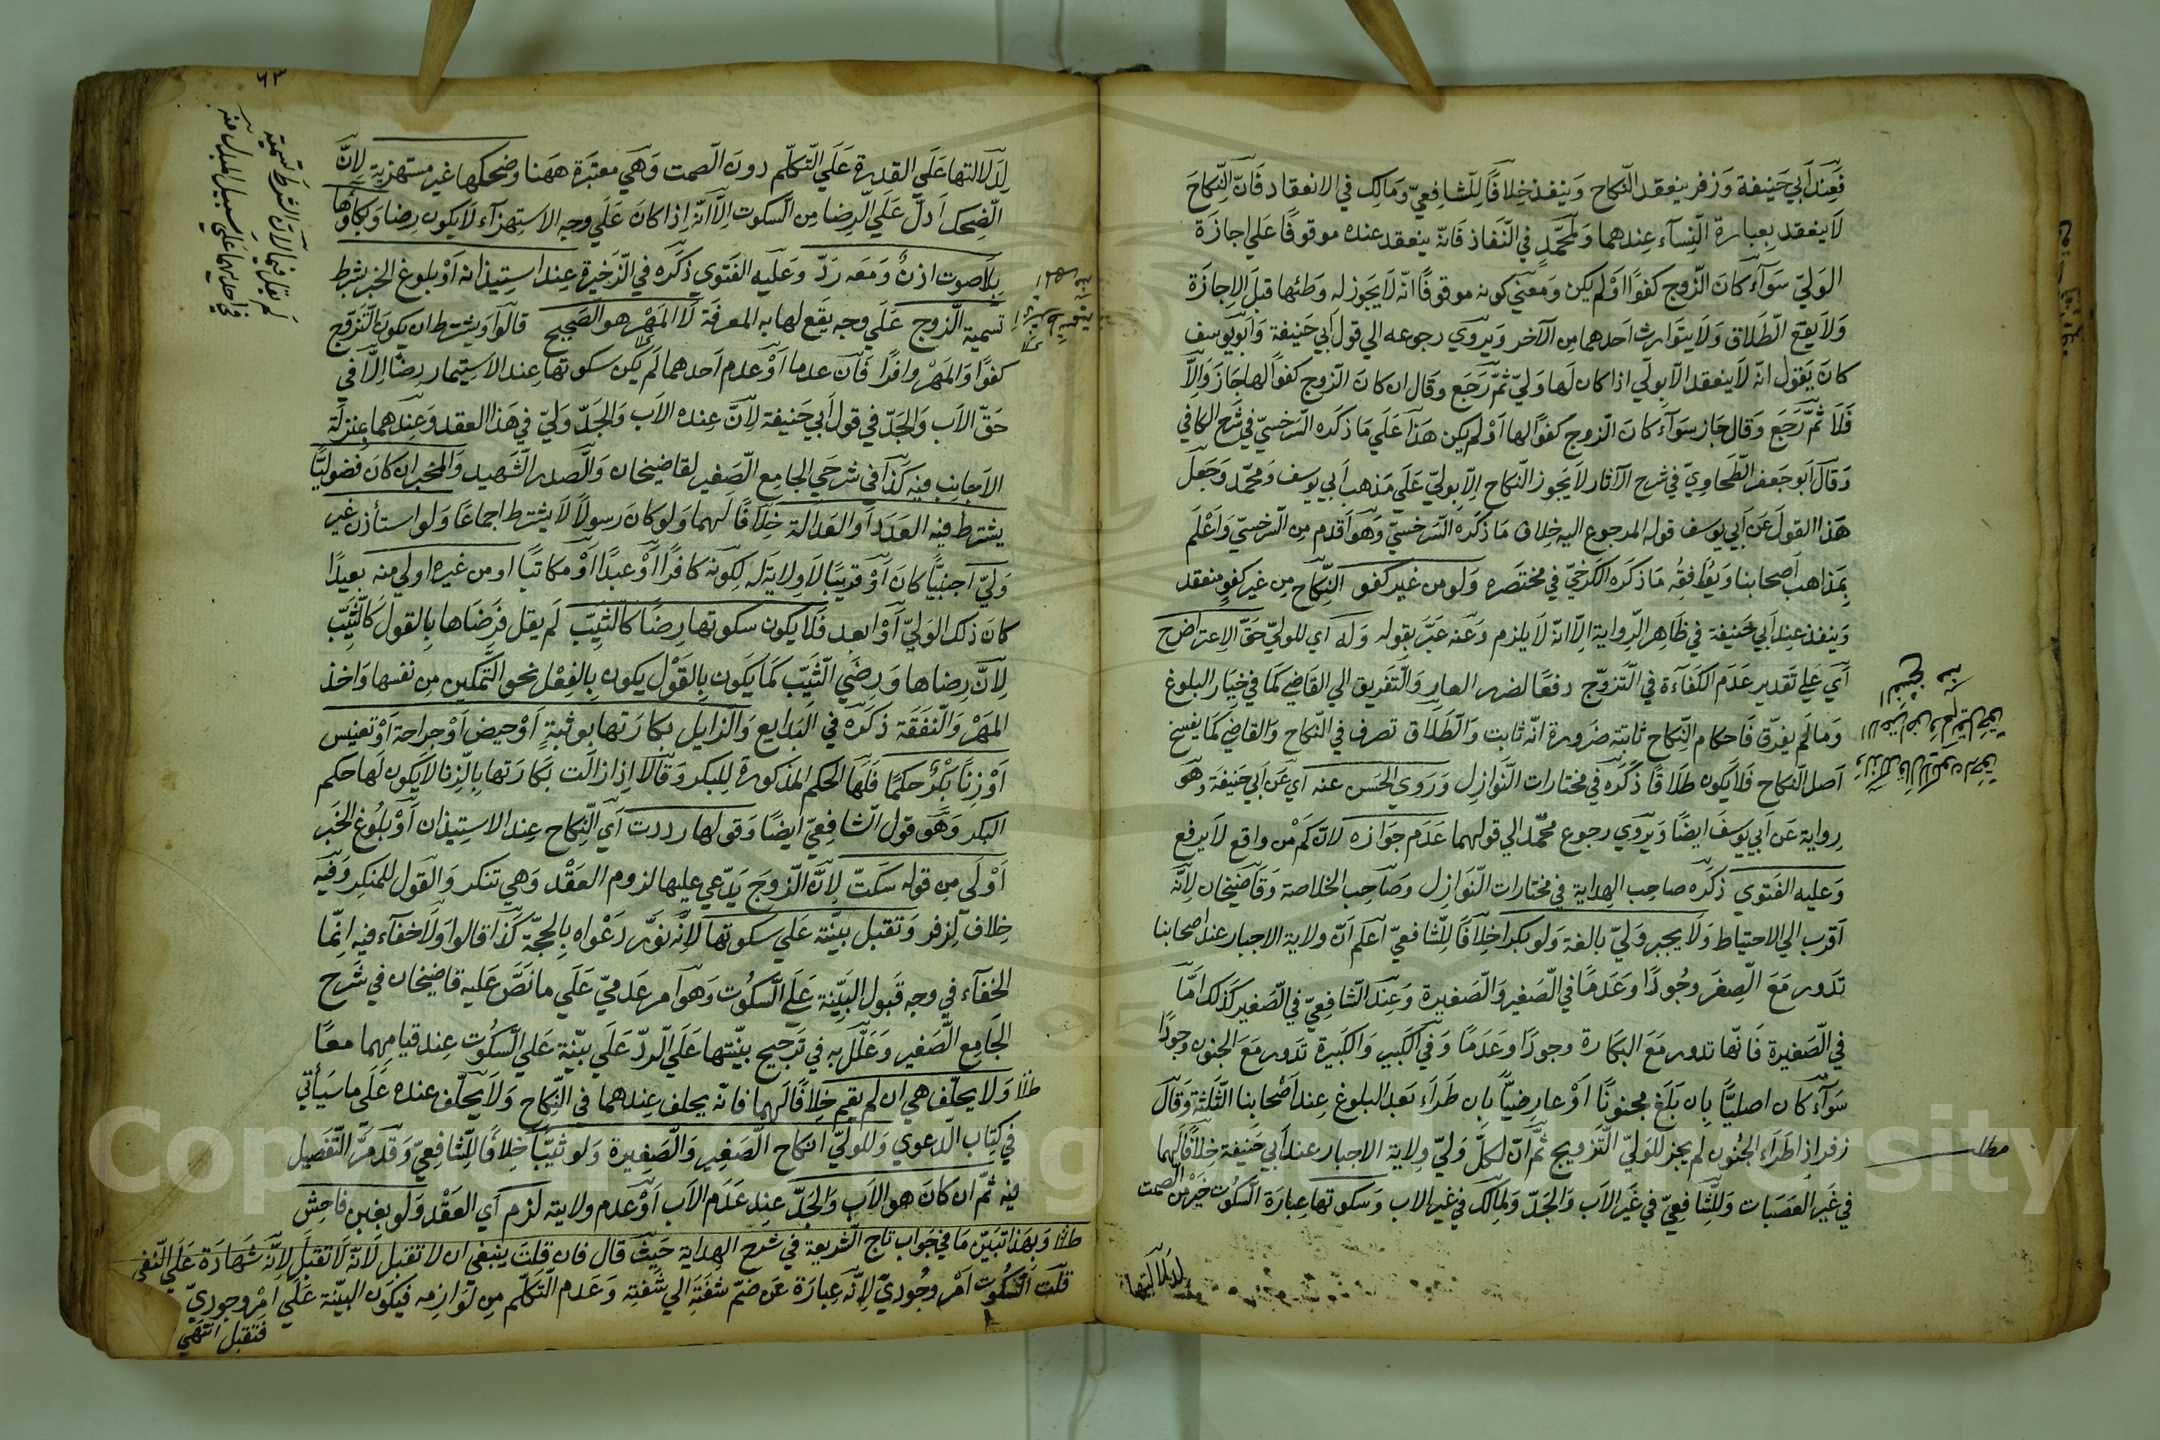 فعند أبي حنيفة وزفر ينعقد النكاح وينفذ خلافا للشافعي ومالك في الانعقاد فان النكاح
لا ينعقد بعبارة النساء عندهما ولمحمد في النفاذ فانه ينعقد عنده موقوفا على اجازة
الولي سواء كان الزوج كفوا او لم يكن ومعنى كونه موقوفا انه لا يجوز له وطئها قبل الاجازة
ولا يقع الطلاق ولا يتوارث احدهما من الآخر ويروي رجوعه الي قول ابي حنيفة وابو يوسف
كان يقول انه لا ينعقد الا بولي اذا كان لها ولي ثم رجع وقال ان كان الزوج كفوا لها جاز والا
فلا ثم رجع وقال جاز سواء كان الزوج كفوا لها او لم يكن هذا علي ما ذكره السرخسي في شرح الكافي
وقال ابو جعفر الطحاوي في شرح الآثار لا يجوز النكاح الا بولي علي مذهب ابي يوسف ومحمد وجعل
هذا القول عن ابي يوسف قوله المرجوع اليه خلاف ما ذكره السرخسي وهو اقدم من السرخسي واعلم
بمذاهب اصحابنا ويوافقه ما ذكره الكرخي في مختصره ولو من غير كفو النكاح من غير كفو منعقد
وينفذ عند ابي حنيفة في ظاهر الرواية الا انه لا يلزم وعنه عبر بقوله وله اي للولي حق الاعتراض ح
اي علي تقدير عدم الكفاءة في التزوج دفعا لضرر العار والتفريق الي القاضي كما في خيار البلوغ
وما لم يفرق فاحكام النكاح ثابتة ضرورة انه ثابت والطلاق تصرف في النكاح والقاضي كما يفسخ
اصل النكاح فلا يكون طلاقا ذكره في مختارات النوازل وروي الحسن عنه اي عن ابي حنيفة وهو
رواية عن ابي يوسف ايضا ويروي رجوع محمد الي قولهما عدم جوازه لان كم من واقع لا يرفع
وعليه الفتوي ذكره صاحب الهداية في مختارات النوازل وصاحب الخلاصة وقاضيخان لانه
اقرب الي الاحتياط ولا يجبر ولي بالغة ولو بكرا خلافا للشافعي اعلم ان ولاية الاجبار عند اصحابنا
تدور مع الصغر وجودا وعدما في الصغير والصغيرة وعند الشافعي في الصغير كذلك اما
في الصغيرة فانها تدور مع البكارة وجودا وعدما وفي الكبير والكبيرة تدور مع الجنون وجودا
سواء كان اصليا بان بلغ مجنونا او عارضيا بان طراء بعد البلوغ عند اصحابنا الثلثة وقال
زفر اذا طراء الجنون لم يجز للولي التزويج ثم ان لكل ولي ولاية الاجبار عند ابي حنيفة خلافا لهما
في غير العصبات وللشافعي في غير الاب والجد ولمالك في غير الاب وسكوتها عبارة السكوت خير من الصمت
لدلالتها
مطلب
٦٣
لدلالتها علي القدرة علي التكلم دون الصمت وهي معتبرة ههنا وضحكها غير مستهزية لان
الضحك ادل علي الرضا من السكوت الا انه اذا كان علي وجه الاستهزاء لا يكون رضا وبكاؤها
بلا صوت اذن ومعه رد وعليه الفتوي ذكره في الذخيرة عند استيذانه او بلوغ الخبر بشرط
تسمية الزوج علي وجه يقع لها به المعرفة لا المهر هو الصحيح قالوا ويشترط ان يكون التزوج
كفوا والمهر وافرا فان عدما او عدم احدهما لم يكن سكوتها عند الاستيمار رضا الا في
حق الاب والجد في قول ابي حنيفة لان عنده الاب والجد ولي في هذا العقد وعندهما بمنزلة
الاجانب فيه كذا في شرحي الجامع الصغير لقاضيخان والصدر الشهيد والمخبر ان كان فضوليا
يشترط فيه العدد او العدالة خلافا لهما ولو كان رسولا لا يشترط اجماعا ولو استأذن غير
ولي اجنبيا كان او قريبا لا ولاية له لكونه كافرا او عبدا او مكاتبا او من غيره اولي منه بعيدا
كان ذلك الولي او ابعد فلا يكون سكوتها رضا كالثيب لم يقل فرضاها بالقول كالثيب
لان رضاها ورضي الثيب كما يكون بالقول يكون بالفعل نحو التمكين من نفسها واخذ
المهر والنفقة ذكره في البدايع والزايل بكارتها بوثبة او حيض او جراحة او تعنيس
او زنا بكر حكما فلها الحكم المذكورة للبكر وقالا اذا زالت بكارتها بالزنا لا يكون لها حكم
البكر وهو قول الشافعي ايضا وقولها رددت اي النكاح عند الاستيذان او بلوغ الخبر
اولى من قوله سكت لان الزوج يدعي عليها لزوم العقد وهي تنكر والقول للمنكر وفيه
خلاف لزفر وتقبل بينته علي سكوتها لانه نور دعواه بالحجة كذا قالوا ولا خفاء فيه انما
الخفاء في وجه قبول البينة علي السكوت وهو امر عدمي علي ما نص عليه قاضيخان في شرح
الجامع الصغير وعلل به في ترجيح بينتها علي الرد علي بينة علي السكوت عند قيامهما معا
ولا يحلف هي ان لم يقم خلافا لهما فانه يحلف عندهما في النكاح ولا يحلف عنده علي ما سيأتي
في كتاب الدعوي وللولي انكاح الصغير والصغيرة ولو ثيبا خلافا للشافعي وقد مر التفصيل
فيه ثم ان كان هو الاب والجد عند عدم الاب او عدم ولايته لزم اي العقد ولو بغبن فاحش
وبهذا تبين ما في جواب تاج الشريعة في شرح الهداية حيث قال فان قلت ينبغي ان لا تقبل لانه لا تقبل لانه شهادة علي النفي
قلت السكوت امر وجودي لانه عبارة عن ضم شفته الي شفته وعدم التكلم من لوازمه فيكون البينة علي امر وجودي
فتقبل انتهي
Copyright © King Saud University